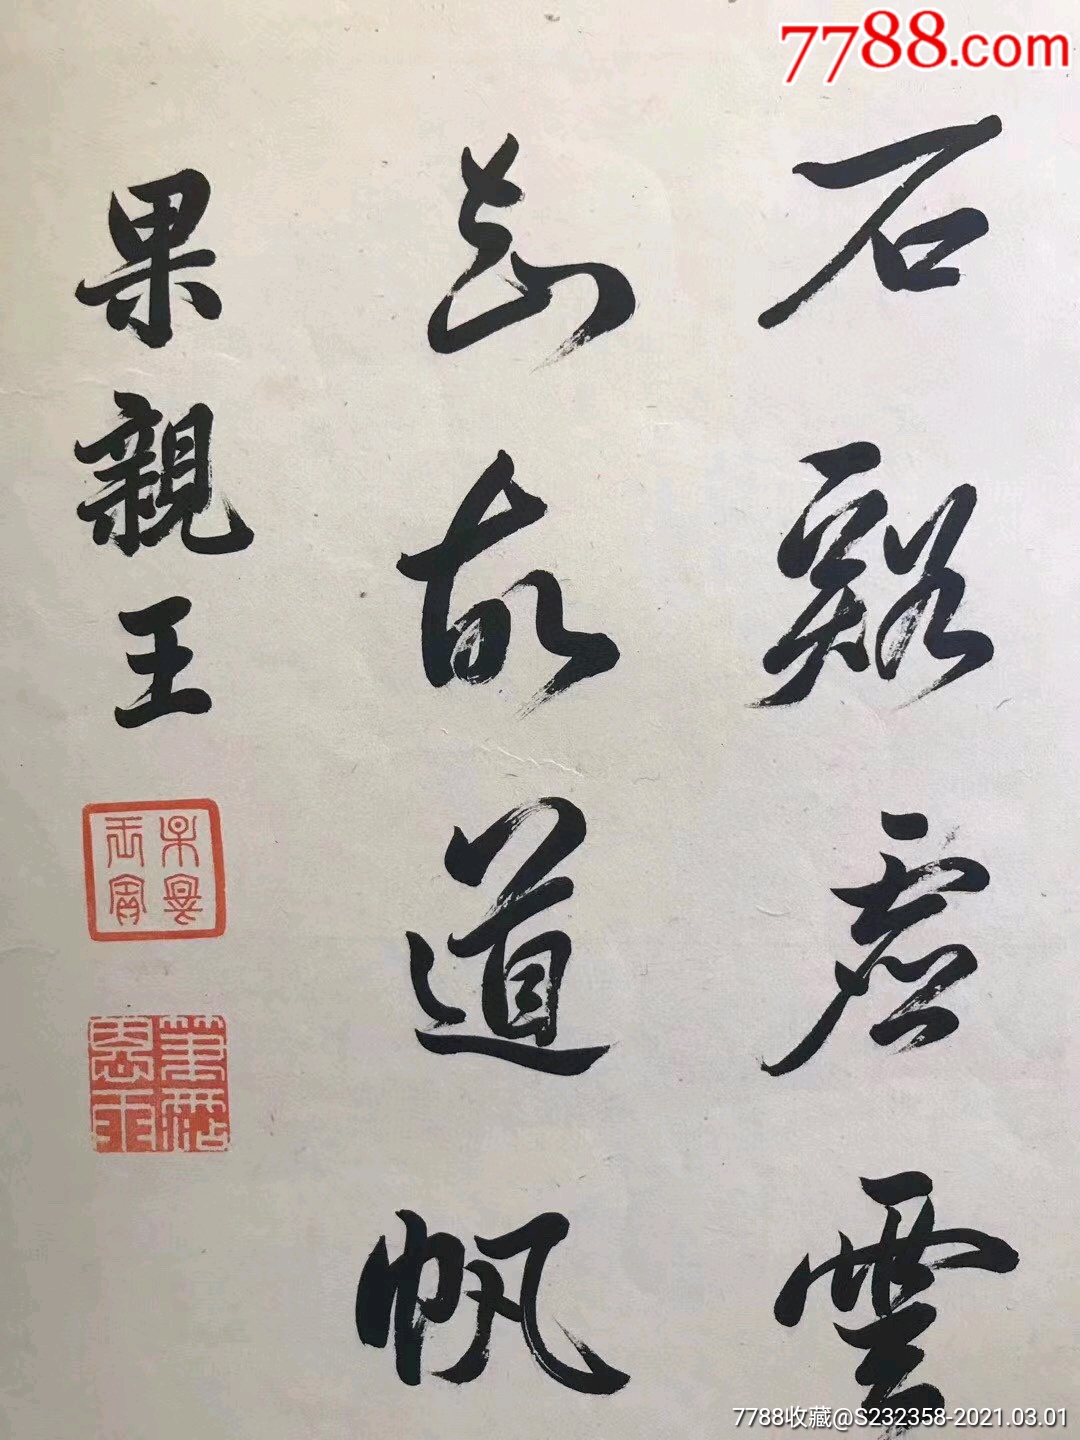 7788.com
石谿虛雲
故道帆
果親王
7788收藏@S232358-2021.03.01